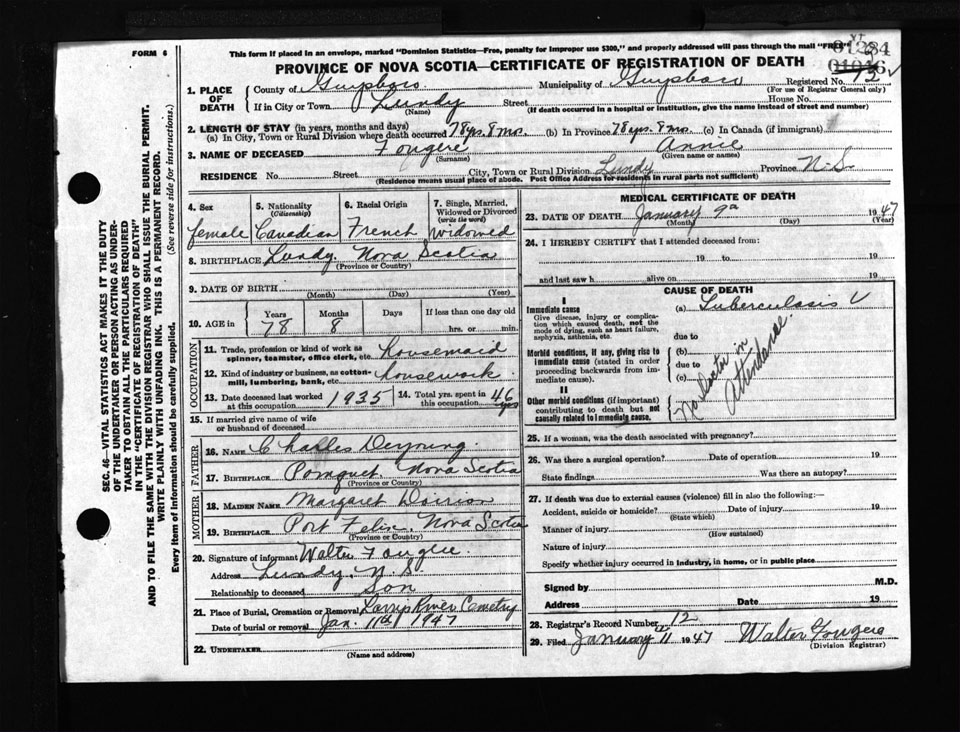 FORM 6
This form if placed in an envelope, marked "Dominion Statistics—Free, penalty for improper use $300," and properly addressed will pass through the mail "FREE"
PROVINCE OF NOVA SCOTIA—CERTIFICATE OF REGISTRATION OF DEATH
01234
01016
1. PLACE OF DEATH
County of Guysboro Municipality of Guysboro Registered No. 12
(For use of Registrar General only)
If in City or Town Lundy Street House No.
(Name) (If death occurred in a hospital or institution, give the name instead of street and number)
2. LENGTH OF STAY (in years, months and days)
(a) In City, Town or Rural Division where death occurred 78 yrs. 8 mos. (b) In Province 78 yrs. 8 mos. (c) In Canada (if immigrant)
3. NAME OF DECEASED Fougere Annie
(Surname) (Given name or names)
RESIDENCE No. Street City, Town or Rural Division Lundy Province N.S
(Residence means usual place of abode. Post Office Address for residents in rural parts not sufficient)
4. Sex female
5. Nationality (Citizenship) Canadian
6. Racial Origin French
7. Single, Married, Widowed or Divorced (write the word) widowed
8. BIRTHPLACE Lundy, Nova Scotia
(Province or Country)
9. DATE OF BIRTH
(Month) (Day) (Year)
10. AGE in Years Months Days If less than one day old
78 8 hrs. or min.
OCCUPATION
11. Trade, profession or kind of work as spinner, teamster, office clerk, etc. housemaid
12. Kind of industry or business, as cotton-mill, lumbering, bank, etc. housework
13. Date deceased last worked at this occupation 1935
14. Total yrs. spent in this occupation 46 yrs
15. If married give name of wife or husband of deceased
FATHER
16. NAME Charles Deyoung
17. BIRTHPLACE Pomquet, Nova Scotia
(Province or Country)
MOTHER
18. MAIDEN NAME Margaret
19. BIRTHPLACE Port Felix, Nova Scotia
(Province or Country)
20. Signature of informant Walter Fougere
Address Lundy, N.S
Relationship to deceased Son
21. Place of Burial, Cremation or Removal Larrys River Cemetry
Date of burial or removal Jan. 11th 1947
22. UNDERTAKER
(Name and address)
MEDICAL CERTIFICATE OF DEATH
23. DATE OF DEATH January 9th 1947
(Month) (Day)
24. I HEREBY CERTIFY that I attended deceased from:
19 to 19
and last saw h alive on 19
CAUSE OF DEATH
I
Immediate cause (a) Tuberculosis
Give disease, injury or complication which caused death, not the mode of dying, such as heart failure, asphyxia, asthenia, etc.
due to
Morbid conditions, if any, giving rise to immediate cause (stated in order proceeding backwards from immediate cause).
(b)
due to
(c)
II
Other morbid conditions (if important) contributing to death but not causally related to immediate cause.
No Doctor in Attendance.
25. If a woman, was the death associated with pregnancy?
26. Was there a surgical operation? Date of operation 19
State findings Was there an autopsy?
27. If death was due to external causes (violence) fill in also the following:—
Accident, suicide or homicide? Date of injury 19
(State which)
Manner of injury
(How sustained)
Nature of injury
Specify whether injury occurred in industry, in home, or in public place
Signed by M.D.
Address Date 19
28. Registrar's Record Number 12
29. Filed January 11 1947 Walter Fougere
(Division Registrar)
SEC. 46—VITAL STATISTICS ACT MAKES IT THE DUTY
OF THE UNDERTAKER OR PERSON ACTING AS UNDER-
TAKER TO OBTAIN ALL THE PARTICULARS REQUIRED
IN THE "CERTIFICATE OF REGISTRATION OF DEATH"
AND TO FILE THE SAME WITH THE DIVISION REGISTRAR WHO SHALL ISSUE THE BURIAL PERMIT.
WRITE PLAINLY WITH UNFADING INK. THIS IS A PERMANENT RECORD.
Every item of information should be carefully supplied. (See reverse side for instructions.)